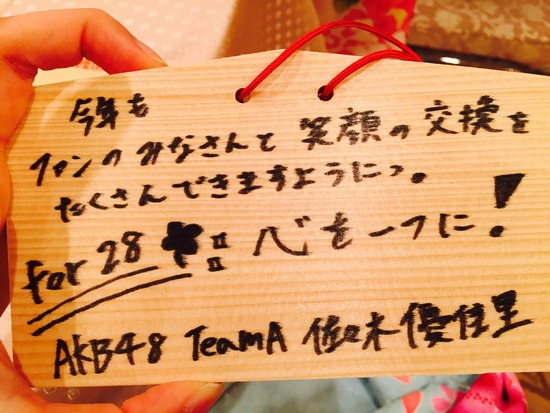 今年も
ファンのみなさんと笑顔の交換を
たくさんできますように。
for 28 !! 心を一つに!
AKB48 TeamA 佐々木優佳里